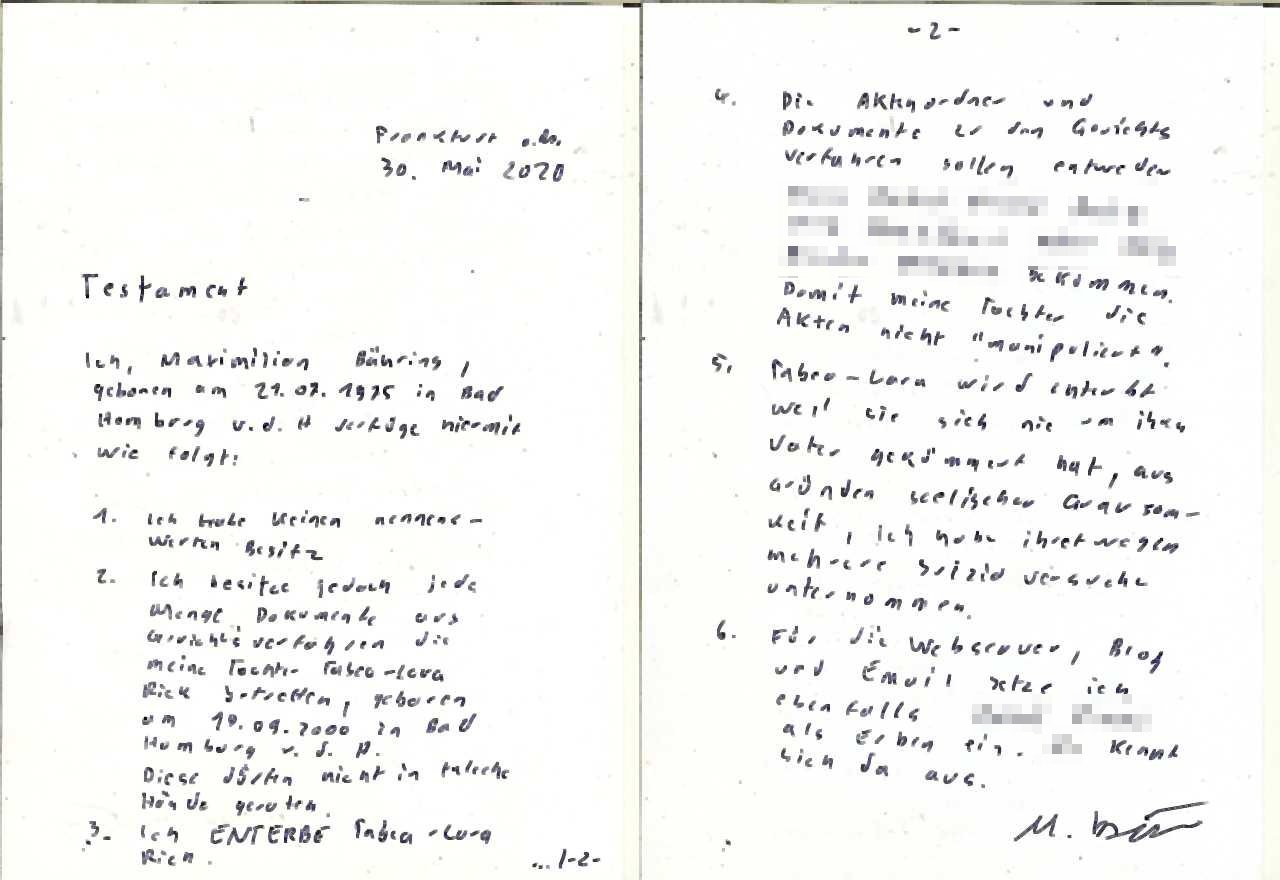 Frankfurt a.M.
30. Mai 2020
Testament
Ich, Maximilian Bähring,
geboren am 21.07.1975 in Bad
Homburg v.d.H verfüge hiermit
wie folgt:
1. Ich habe keinen nennens-
werten Besitz
2. Ich besitze jedoch jede
Menge Dokumente aus
Gerichtsverfahren die
meine Tochter Tabea-Lara
Riek betreffen, geboren
am 19.09.2000 in Bad
Homburg v.d.H.
Diese dürfen nicht in falsche
Hände geraten.
3. Ich ENTERBE Tabea-Lara
Riek.
.../-2-
-2-
4. Die Aktenordner und
Dokumente zu den Gerichts
verfahren sollen entweder
bekommen.
Damit meine Tochter die
Akten nicht "manipuliert".
5. Tabea-Lara wird enterbt
weil sie sich nie um ihren
Vater gekümmert hat, aus
Gründen seelischer Grausam-
keit, ich habe ihretwegen
mehrere Suizid versuche
unternommen.
6. Für die Webserver, Blog
und Email setze ich
ebenfalls
als Erben ein. kennt
sich da aus.
M.